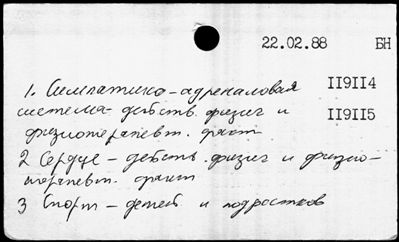 22.02.88 БН
1. Симпатико-адреналовая II9II4
система- действ. физич и II9II5
физиотерапевт. факт.
2 Сердце - действ. физич и физио-
терапевт. факт
3 Спорт - детей и подростков